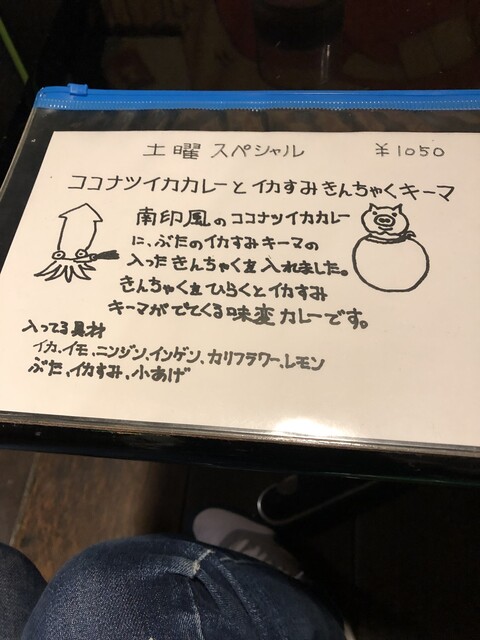 土曜 スペシャル ¥1050
ココナツイカカレーとイカすみきんちゃくキーマ
南印風のココナツイカカレー
に、ぶたのイカすみキーマの
入ったきんちゃくを入れました。
きんちゃくをひらくとイカすみ
キーマがでてくる味変カレーです。
入ってる具材
イカ、イモ、ニンジン、インゲン、カリフラワー、レモン
ぶた、イカすみ、小あげ